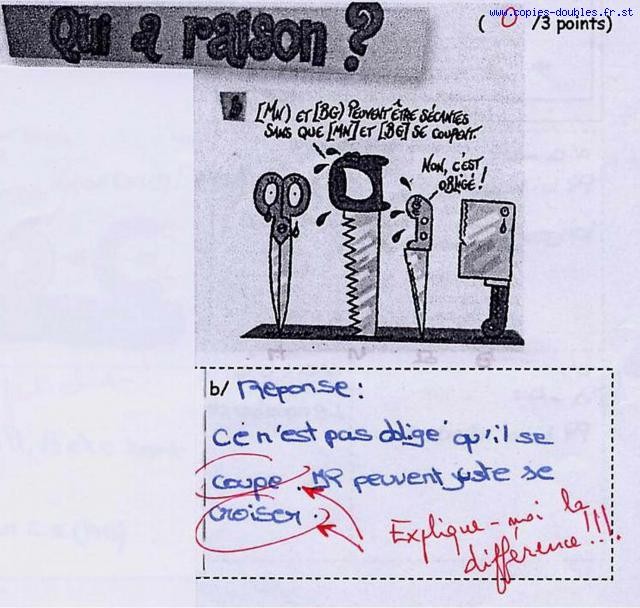 www.copies-doubles.fr.st
Qui a raison ?
( 0 /3 points)
[MN) ET [BG) PEUVENT ÊTRE SÉCANTES
SANS QUE [MN] ET [BG] SE COUPENT.
NON, C'EST
OBLIGÉ !
b/ Réponse :
Ce n'est pas obligé qu'il se
coupe. peuvent juste se
croiser.
Explique-moi la
différence !!!